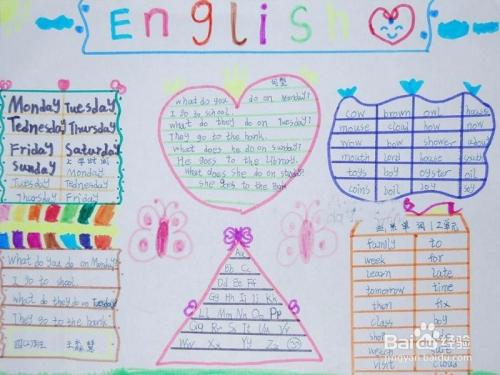 English
Monday Tuesday
Tednesday Thursday
Friday Saturday
Sunday 上学时间
Monday
Tuesday Tednesday
Thursday Friday
What do you do on Monday?
I go to school.
what do they do on Tuesday
They go to the bank.
句型
what do you do on Monday?
I go to school.
what do they do on Tuesday?
They go to the bank.
what does he do on Sunday?
He goes to the library.
What does she do on
she goes to the Bank
Aa
Bb Cc
Dd Ee Ff
Gg Hh Ii Jj Kk
Ll Mm Nn Oo Pp
Qq Rr Ss Tt Uu Vv
Ww Xx Yy Zz
cow brown owl house
mouse cloud how now
wow how shower about
mouth lord house south
toys boy oyster oil
coins boil joy soy
单词 1 2单元
family to
week for
learn late
tomorrow time
then fix
class boy
short
watch
visit cloud
Baidu 经验
jingyan.baidu.com